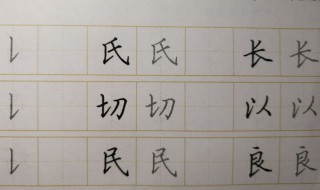 氏 氏 长 长
切 切 以 以
民 民 良 良